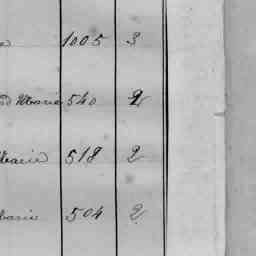 1005 3
Marie 540 2
Marie 518 2
Marie 504 2